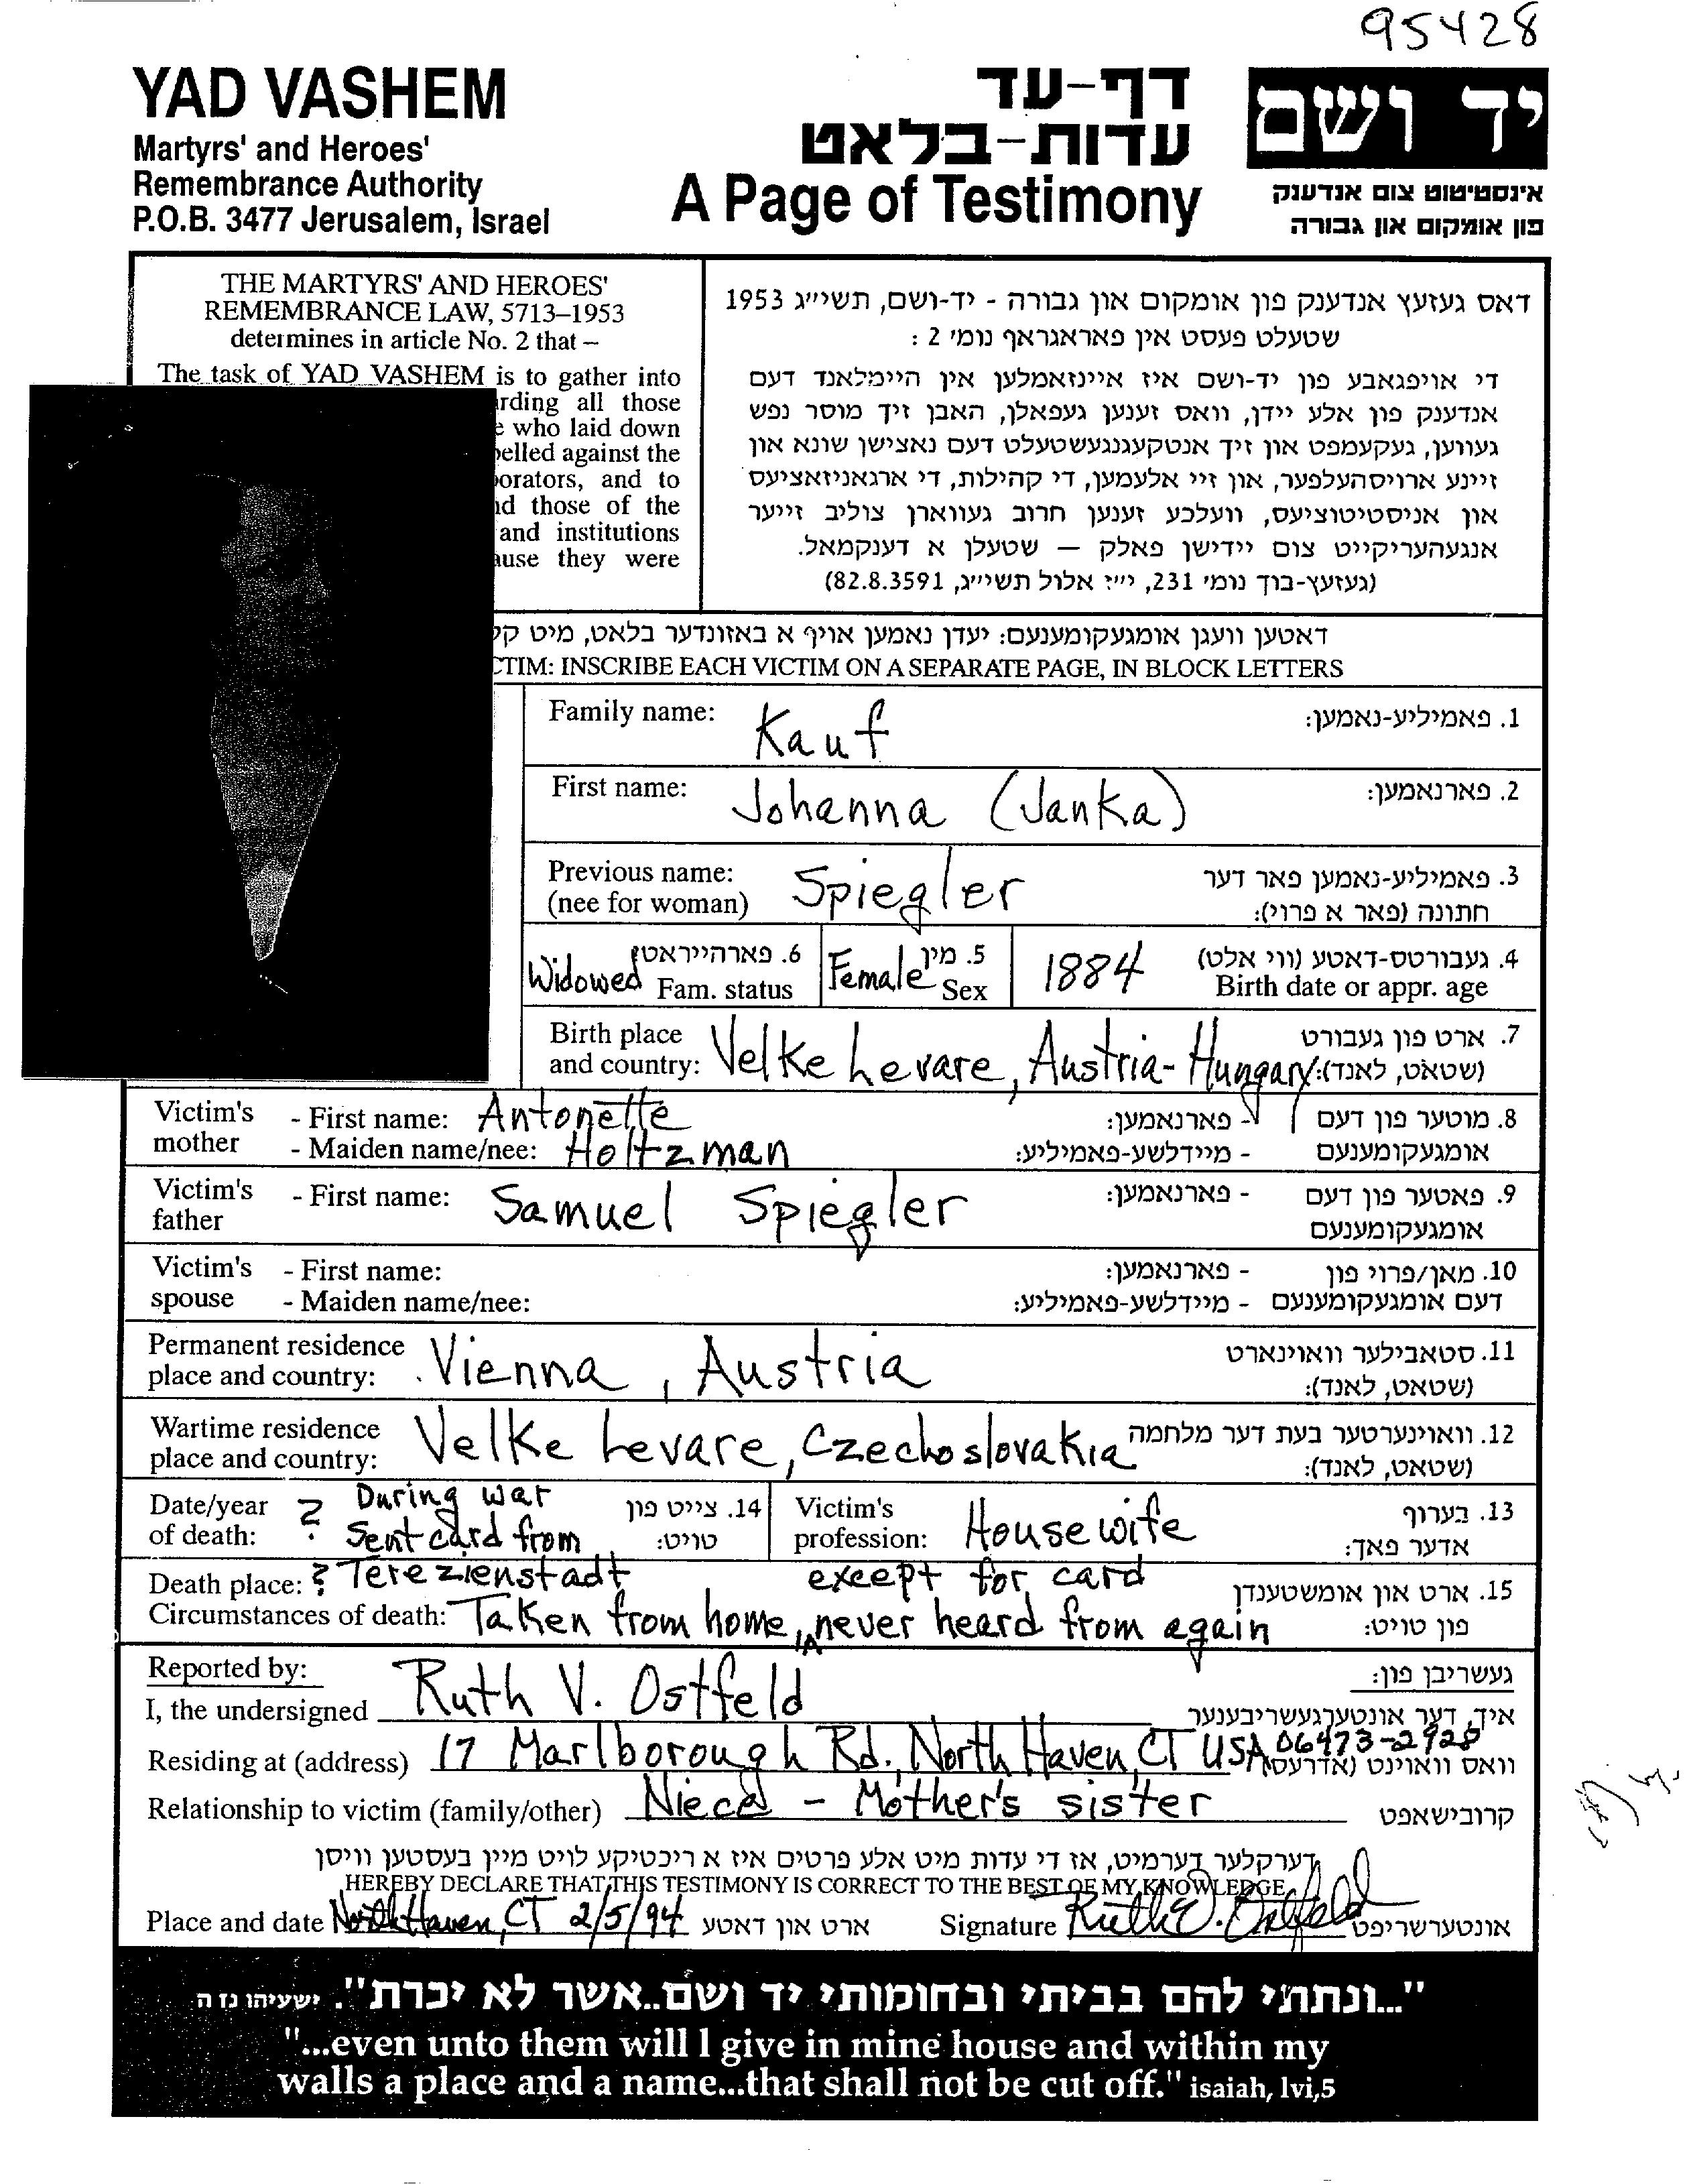 95428
YAD VASHEM
Martyrs' and Heroes'
Remembrance Authority
P.O.B. 3477 Jerusalem, Israel
דף-עד
עדות-בלאט
A Page of Testimony
יד ושם
אינסטיטוט צום אנדענק
פון אומקום און גבורה
THE MARTYRS' AND HEROES'
REMEMBRANCE LAW, 5713–1953
determines in article No. 2 that –
The task of YAD VASHEM is to gather into
rding all those
e who laid down
belled against the
orators, and to
nd those of the
and institutions
ause they were
דאס געזעץ אנדענק פון אומקום און גבורה - יד-ושם, תשי״ג 1953
שטעלט פעסט אין פאראגראף נומ׳ 2 :
די אויפגאבע פון יד-ושם איז איינזאמלען אין היימלאנד דעם
אנדענק פון אלע יידן, וואס זענען געפאלן, האבן זיך מוסר נפש
געווען, געקעמפט און זיך אנטקעגנגעשטעלט דעם נאצישן שונא און
זיינע ארויסהעלפער, און זיי אלעמען, די קהילות, די ארגאניזאציעס
און אניסטיטוציעס, וועלכע זענען חרוב געווארן צוליב זייער
אנגעהעריקייט צום יידישן פאלק — שטעלן א דענקמאל.
(געזעץ-בוך נומ׳ 231, י״ז אלול תשי״ג, 82.8.3591)
דאטען וועגן אומגעקומענעם: יעדן נאמען אויף א באזונדער בלאט, מיט קל
CTIM: INSCRIBE EACH VICTIM ON A SEPARATE PAGE, IN BLOCK LETTERS
Family name: Kauf 1. פאמיליע-נאמען:
First name: Johanna (Janka) 2. פארנאמען:
Previous name: Spiegler 3. פאמיליע-נאמען פאר דער
(nee for woman) חתונה (פאר א פרוי):
Widowed 6. פארהייראט Female 5. מין 1884 4. געבורטס-דאטע (ווי אלט)
Fam. status Sex Birth date or appr. age
Birth place 7. ארט פון געבורט
and country: Velke Levare, Austria-Hungary (שטאט, לאנד):
Victim's - First name: Antonette - פארנאמען: 8. מוטער פון דעם
mother - Maiden name/nee: Holtzman - מיידלשע-פאמיליע: אומגעקומענעם
Victim's - First name: Samuel Spiegler - פארנאמען: 9. פאטער פון דעם
father אומגעקומענעם
Victim's - First name: - פארנאמען: 10. מאן/פרוי פון
spouse - Maiden name/nee: - מיידלשע-פאמיליע: דעם אומגעקומענעם
Permanent residence 11. סטאבילער וואוינארט
place and country: Vienna, Austria (שטאט, לאנד):
Wartime residence 12. וואוינערטער בעת דער מלחמה
place and country: Velke Levare, Czechoslovakia (שטאט, לאנד):
Date/year ? During war 14. צייט פון Victim's 13. בערוף
of death: Sent card from טויט: profession: Housewife אדער פאך:
Death place: ? Terezienstadt except for card 15. ארט און אומשטענדן
Circumstances of death: Taken from home, never heard from again פון טויט:
Reported by: געשריבן פון:
I, the undersigned Ruth V. Ostfeld איך, דער אונטערגעשריבענער
Residing at (address) 17 Marlborough Rd., North Haven, CT USA 06473-2928 וואס וואוינט (אדרעס)
Relationship to victim (family/other) Niece - Mother's sister קרובישאפט
דערקלער דערמיט, אז די עדות מיט אלע פרטים איז א ריכטיקע לויט מיין בעסטען וויסן
HEREBY DECLARE THAT THIS TESTIMONY IS CORRECT TO THE BEST OF MY KNOWLEDGE
Place and date North Haven, CT 2/5/94 ארט און דאטע Signature Ruth V. Ostfeld אונטערשריפט
"...ונתתי להם בביתי ובחומותי יד ושם..אשר לא יכרת". ישעיהו נז ה
"...even unto them will I give in mine house and within my
walls a place and a name...that shall not be cut off." isaiah, lvi,5